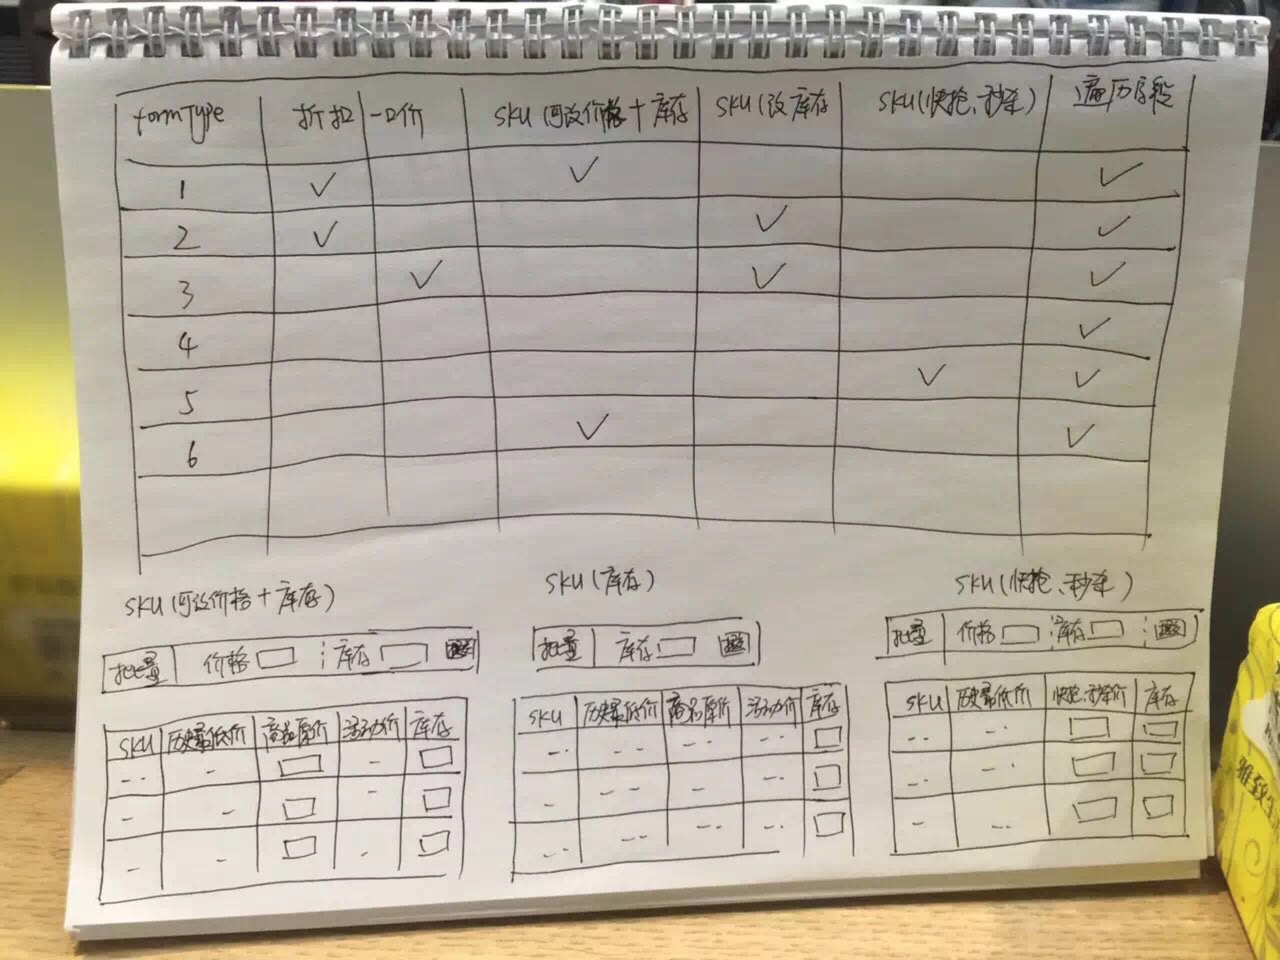 formType 折扣 一口价 SKU(可改价格+库存 SKU(改库存 SKU(快抢、秒杀) 遍历字段
1 ✓ ✓ ✓
2 ✓ ✓ ✓
3 ✓ ✓ ✓
4 ✓
5 ✓ ✓
6 ✓ ✓
SKU(可改价格+库存)
批量 价格 库存
SKU 历史最低价 商品原价 活动价 库存
SKU(库存)
批量 库存
SKU 历史最低价 商品原价 活动价 库存
SKU(快抢、秒杀)
批量 价格 库存
SKU 历史最低价 快抢、秒杀价 库存
雅致